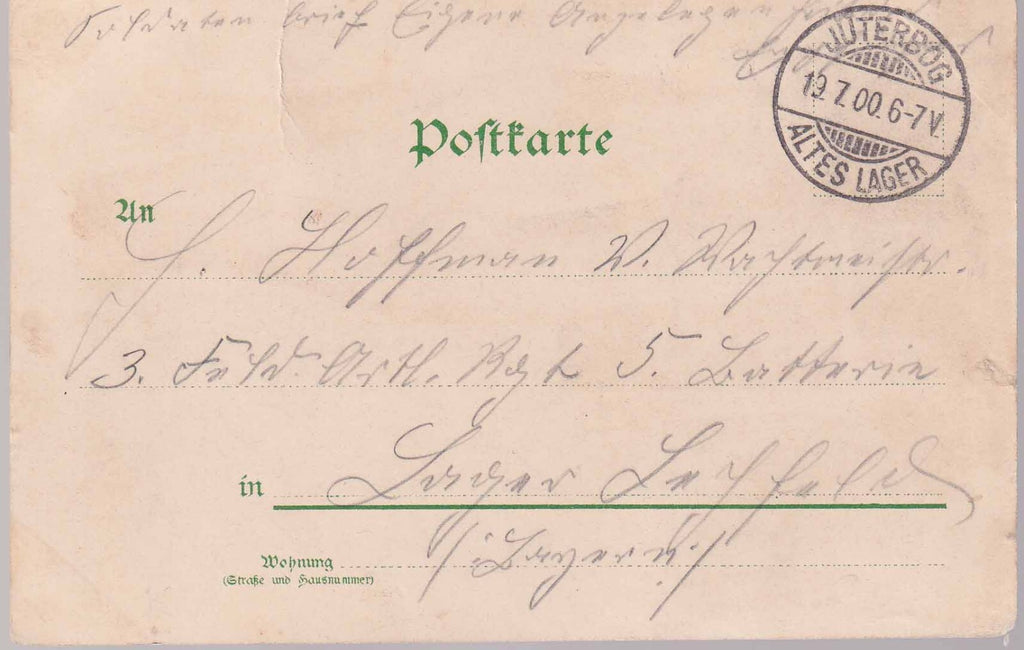 Soldaten brief Eigene Angelegenheit des
JÜTERBOG
19 7.00.6-7V.
ALTES LAGER
Postkarte
An
H. Hoffman V. Wachtmeistr.
3. Feld Artl. Rgt 5. Batterie
in Lager Lechfeld
Wohnung /: Bayern :/
(Straße und Hausnummer)